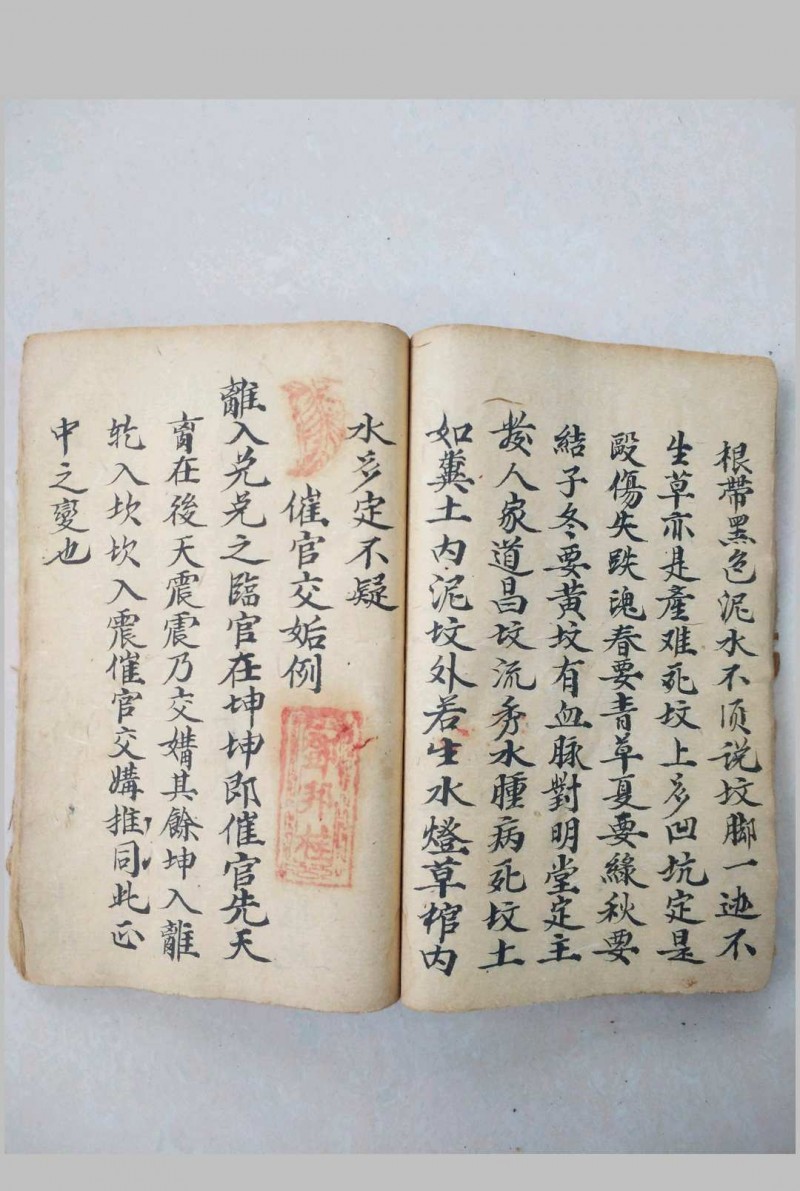 根帶黑色泥水不須说坟脚一边不
生草亦是產难死坟上多凹坑定是
毆傷失跌魂春要青草夏要綠秋要
結子冬要黃坟有血脉對明堂定主
發人家道昌坟流秀水腫病死坟土
如糞土内泥坟外若生水燈草棺内
水多定不疑
催官交姤例
離入兑兑之臨官在坤坤即催官先天
離在後天震震乃交媾其餘坤入離
乾入坎坎入震催官交媾推同此正
中之變也